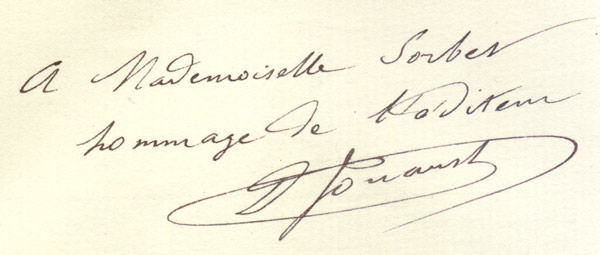 A Mademoiselle Sorbet
hommage de l'éditeur
D Jouaust